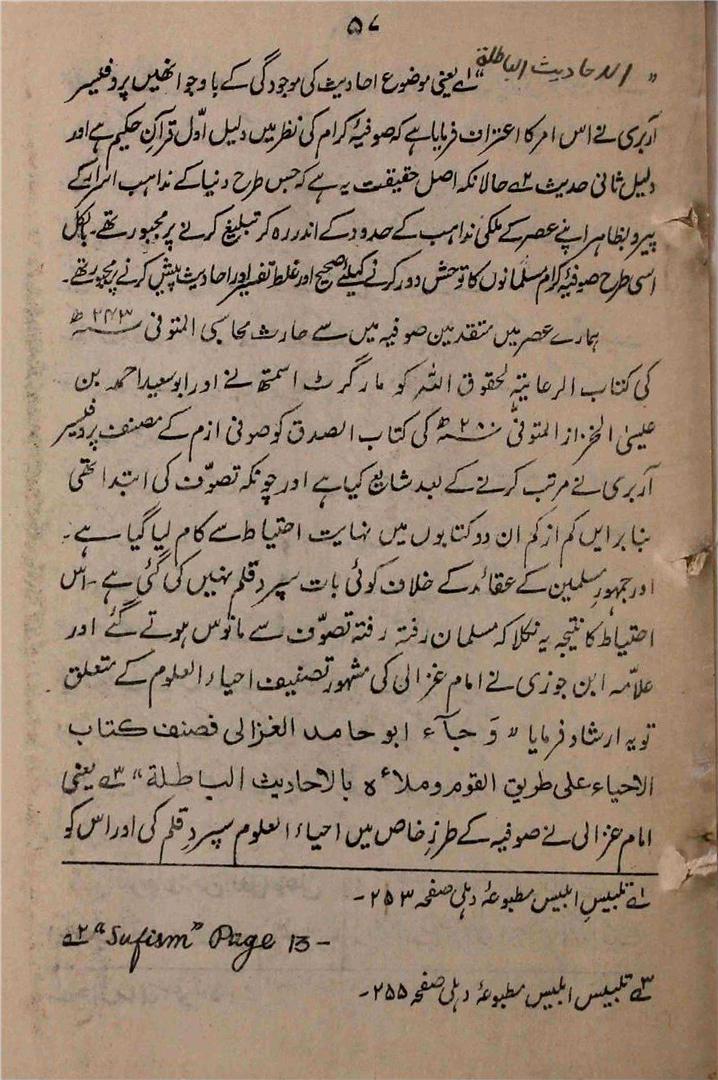 ۵۷
"الاحادیث الباطلة" لے یعنی موضوع احادیث کی موجودگی کے باوجو انھیں پروفیسر
آربری نے اس امر کا اعتراف فرمایا ہے کہ صوفیۂ کرام کی نظر میں دلیل اوّل قرآنِ حکیم ہے اور
دلیل ثانی حدیث ۲ے حالانکہ اصل حقیقت یہ ہے کہ جس طرح دنیا کے مذاہب اسرار کے
پیرو بظاہر اپنے عصر کے ملکی مذاہب کے حدود کے اندر رہ کر تبلیغ کرنے پر مجبور تھے۔ بالکل
اسی طرح صوفیۂ کرام مسلمانوں کا توحش دور کرنے کیلئے صحیح اور غلط تفسیر اور احادیث پیش کرنے پر مجبور تھے۔
ہمارے عصر میں متقدمین صوفیہ میں سے حارث محاسبی المتوفی ۲۴۳ھ
کی کتاب الرعایۃ لحقوق اللہ کو مارگرٹ اسمتھ نے اور ابو سعید احمد بن
عیسٰی الخزاز المتوفیّٰ ۲۸۰ھ کی کتاب الصدق کو صوفی ازم کے مصنف پروفیسر
آربری نے مرتب کرنے کے بعد شایع کیا ہے اور چونکہ تصوّف کی ابتدا تھی
بنا بر ایں کم از کم ان دو کتابوں میں نہایت احتیاط سے کام لیا گیا ہے۔
اور جمہور مسلمین کے عقائد کے خلاف کوئی بات سپرد قلم نہیں کی گئی ہے۔ اس
احتیاط کا نتیجہ یہ نکلا کہ مسلمان رفتہ رفتہ تصوّف سے مانوس ہوتے گئے اور
علّامہ ابن جوزی نے امام غزالی کی مشہور تصنیف احیاء العلوم کے متعلق
تو یہ ارشاد فرمایا " وَ جآء ابو حامد الغزالی فصنف کتاب
الاحیاء علی طریق القوم وملاءہ بالاحادیث الباطلة" ۳ے یعنی
امام غزالی نے صوفیہ کے طرزِ خاص میں احیاء العلوم سپردِ قلم کی اور اس کو
۱ے تلبیس ابلیس مطبوعۂ دہلی صفحہ ۲۵۳۔
۲ے "Sufism" Page 13 -
۳ے تلبیس ابلیس مطبوعۂ دہلی صفحہ ۲۵۵۔